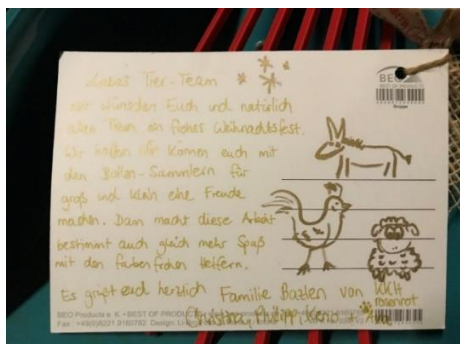 Liebes Tier-Team
wir wünschen Euch und natürlich
allen Tieren ein frohes Weihnachtsfest.
Wir hoffen wir können euch mit
den Bollen-Sammlern für
groß und klein eine Freude
machen. Dann macht diese Arbeit
bestimmt auch gleich mehr Spaß
mit den farbenfrohen Helfern.
Es grüßt euch herzlich Familie von
Christina, Philipp,
BEO
BEST OF PRODUCTS
BEO Products e. K. • BEST OF
Fax.: +49(0)8221 9160782 Design: